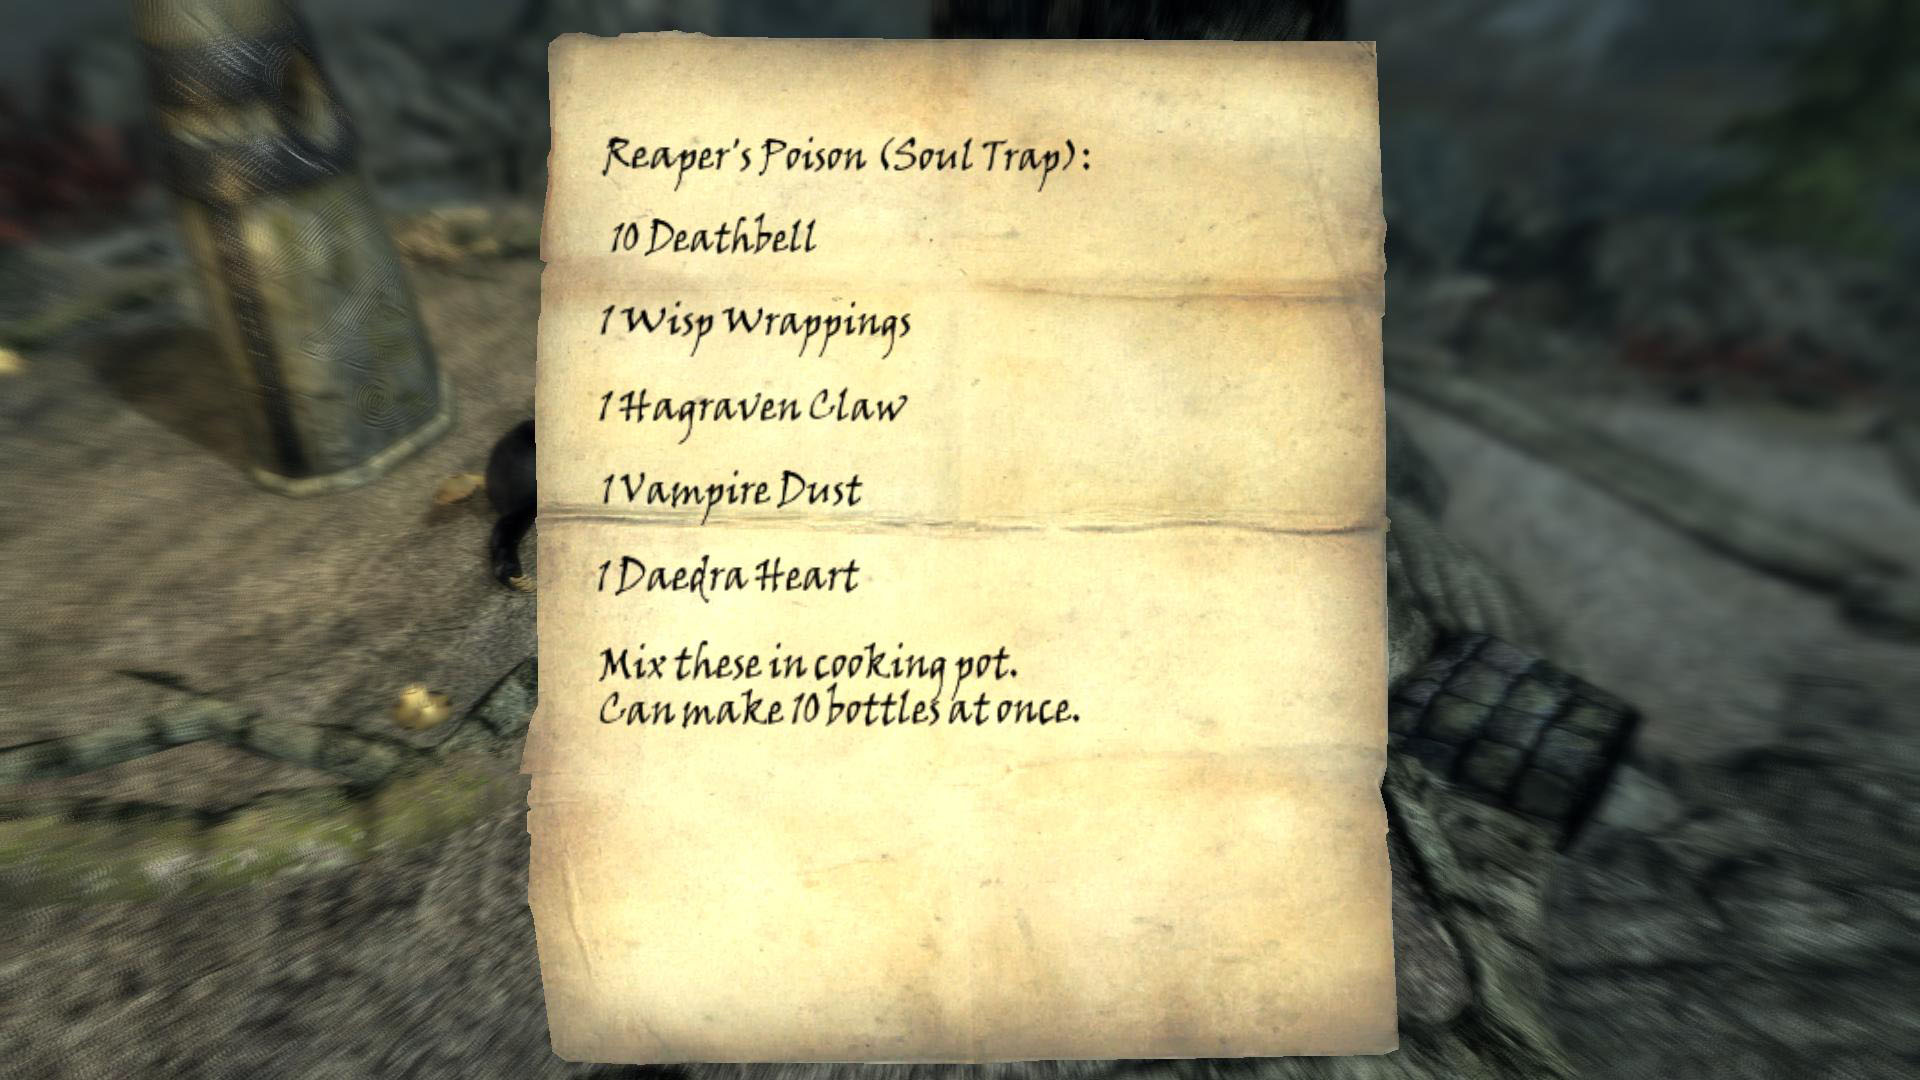 Reaper's Poison (Soul Trap):
10 Deathbell
1 Wisp Wrappings
1 Hagraven Claw
1 Vampire Dust
1 Daedra Heart
Mix these in cooking pot.
Can make 10 bottles at once.